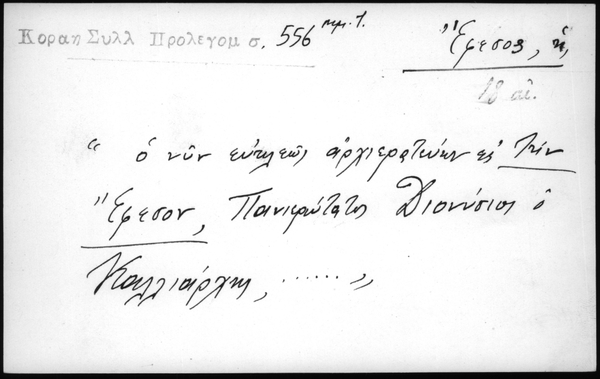 Κοραη Συλλ Προλεγομ σ. 556 σημ. 1.
Ἔφεσος, ἡ,
18 αἰ.
“ ὁ νῦν εὐκλεῶς ἀρχιερατεύων εἰς τὴν
Ἔφεσον, Πανιερώτατος Διονύσιος ὁ
Καλλιάρχης, ...... „